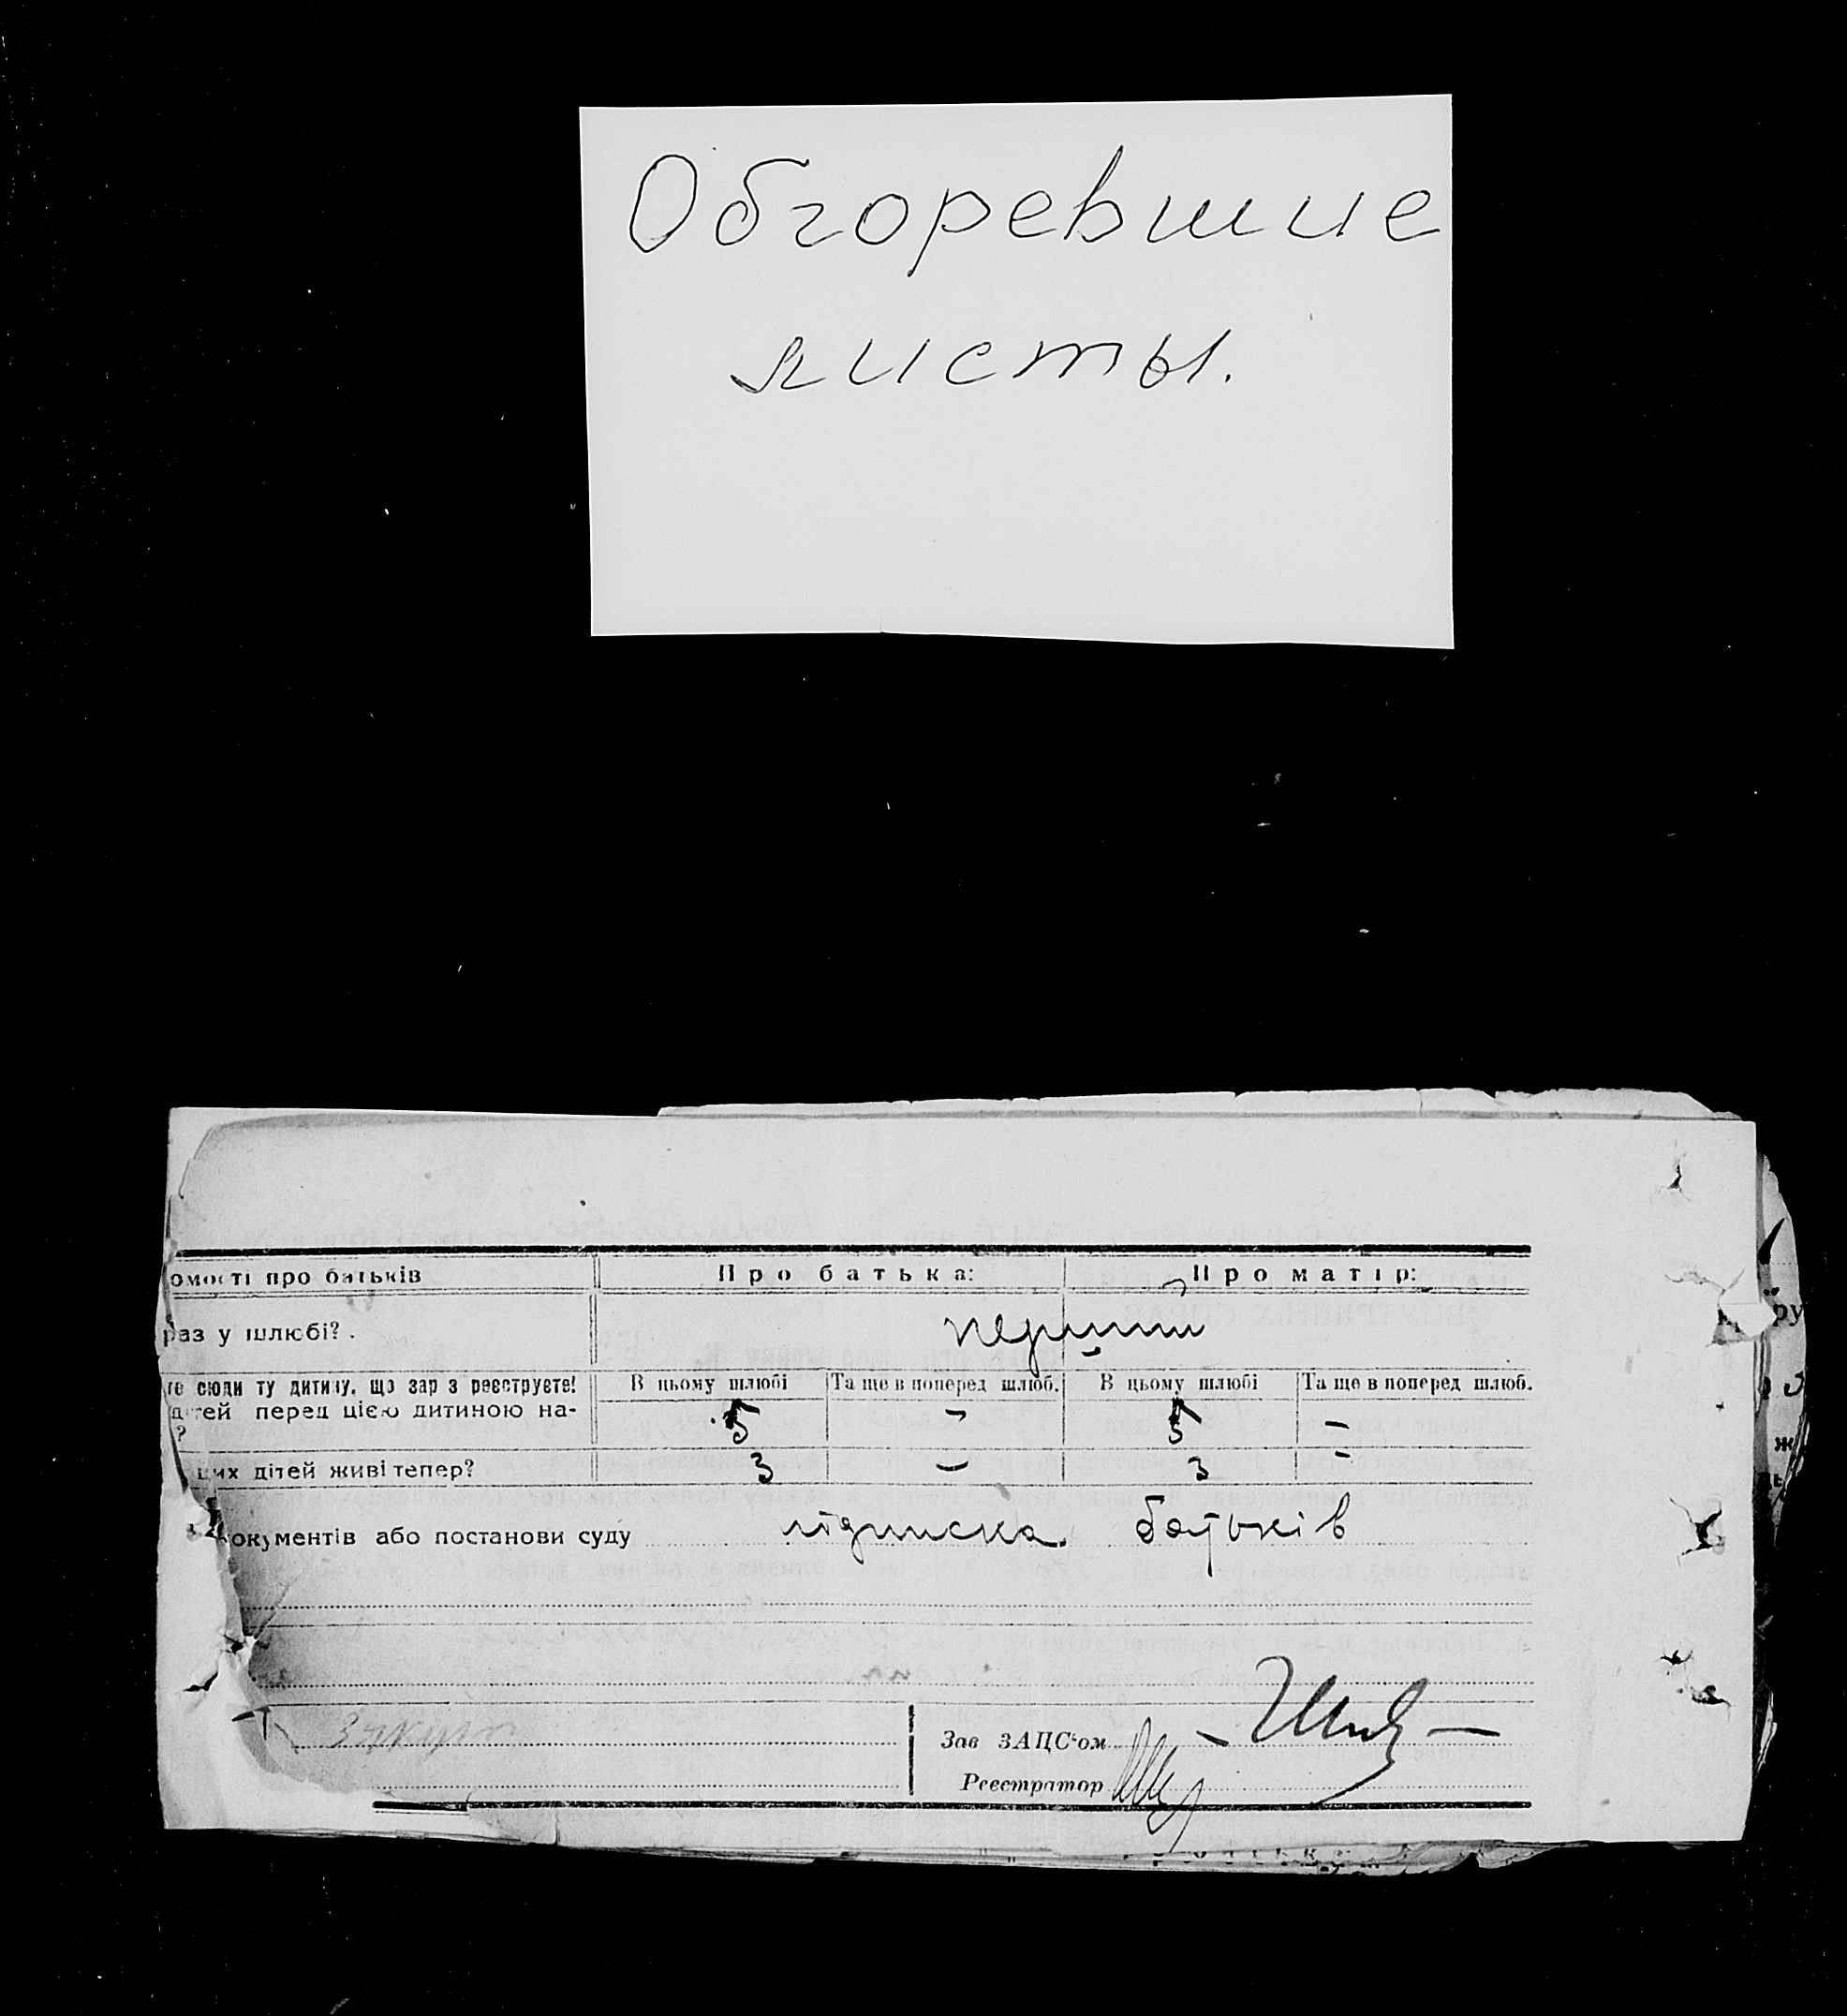 Обгоревшие
листы.
омості про батьків Про батька: Про матір:
раз у шлюбі? . перший
те сюди ту дитину, що зар з реєструєте! В цьому шлюбі Та ще в поперед шлюб. В цьому шлюбі Та ще в поперед шлюб.
дітей перед цією дитиною на- 5 – 5 –
?
цих дітей живі тепер? 3 – 3 –
окументів або постанови суду підписка батьків
Зав ЗАЦС'ом
Реєстратор